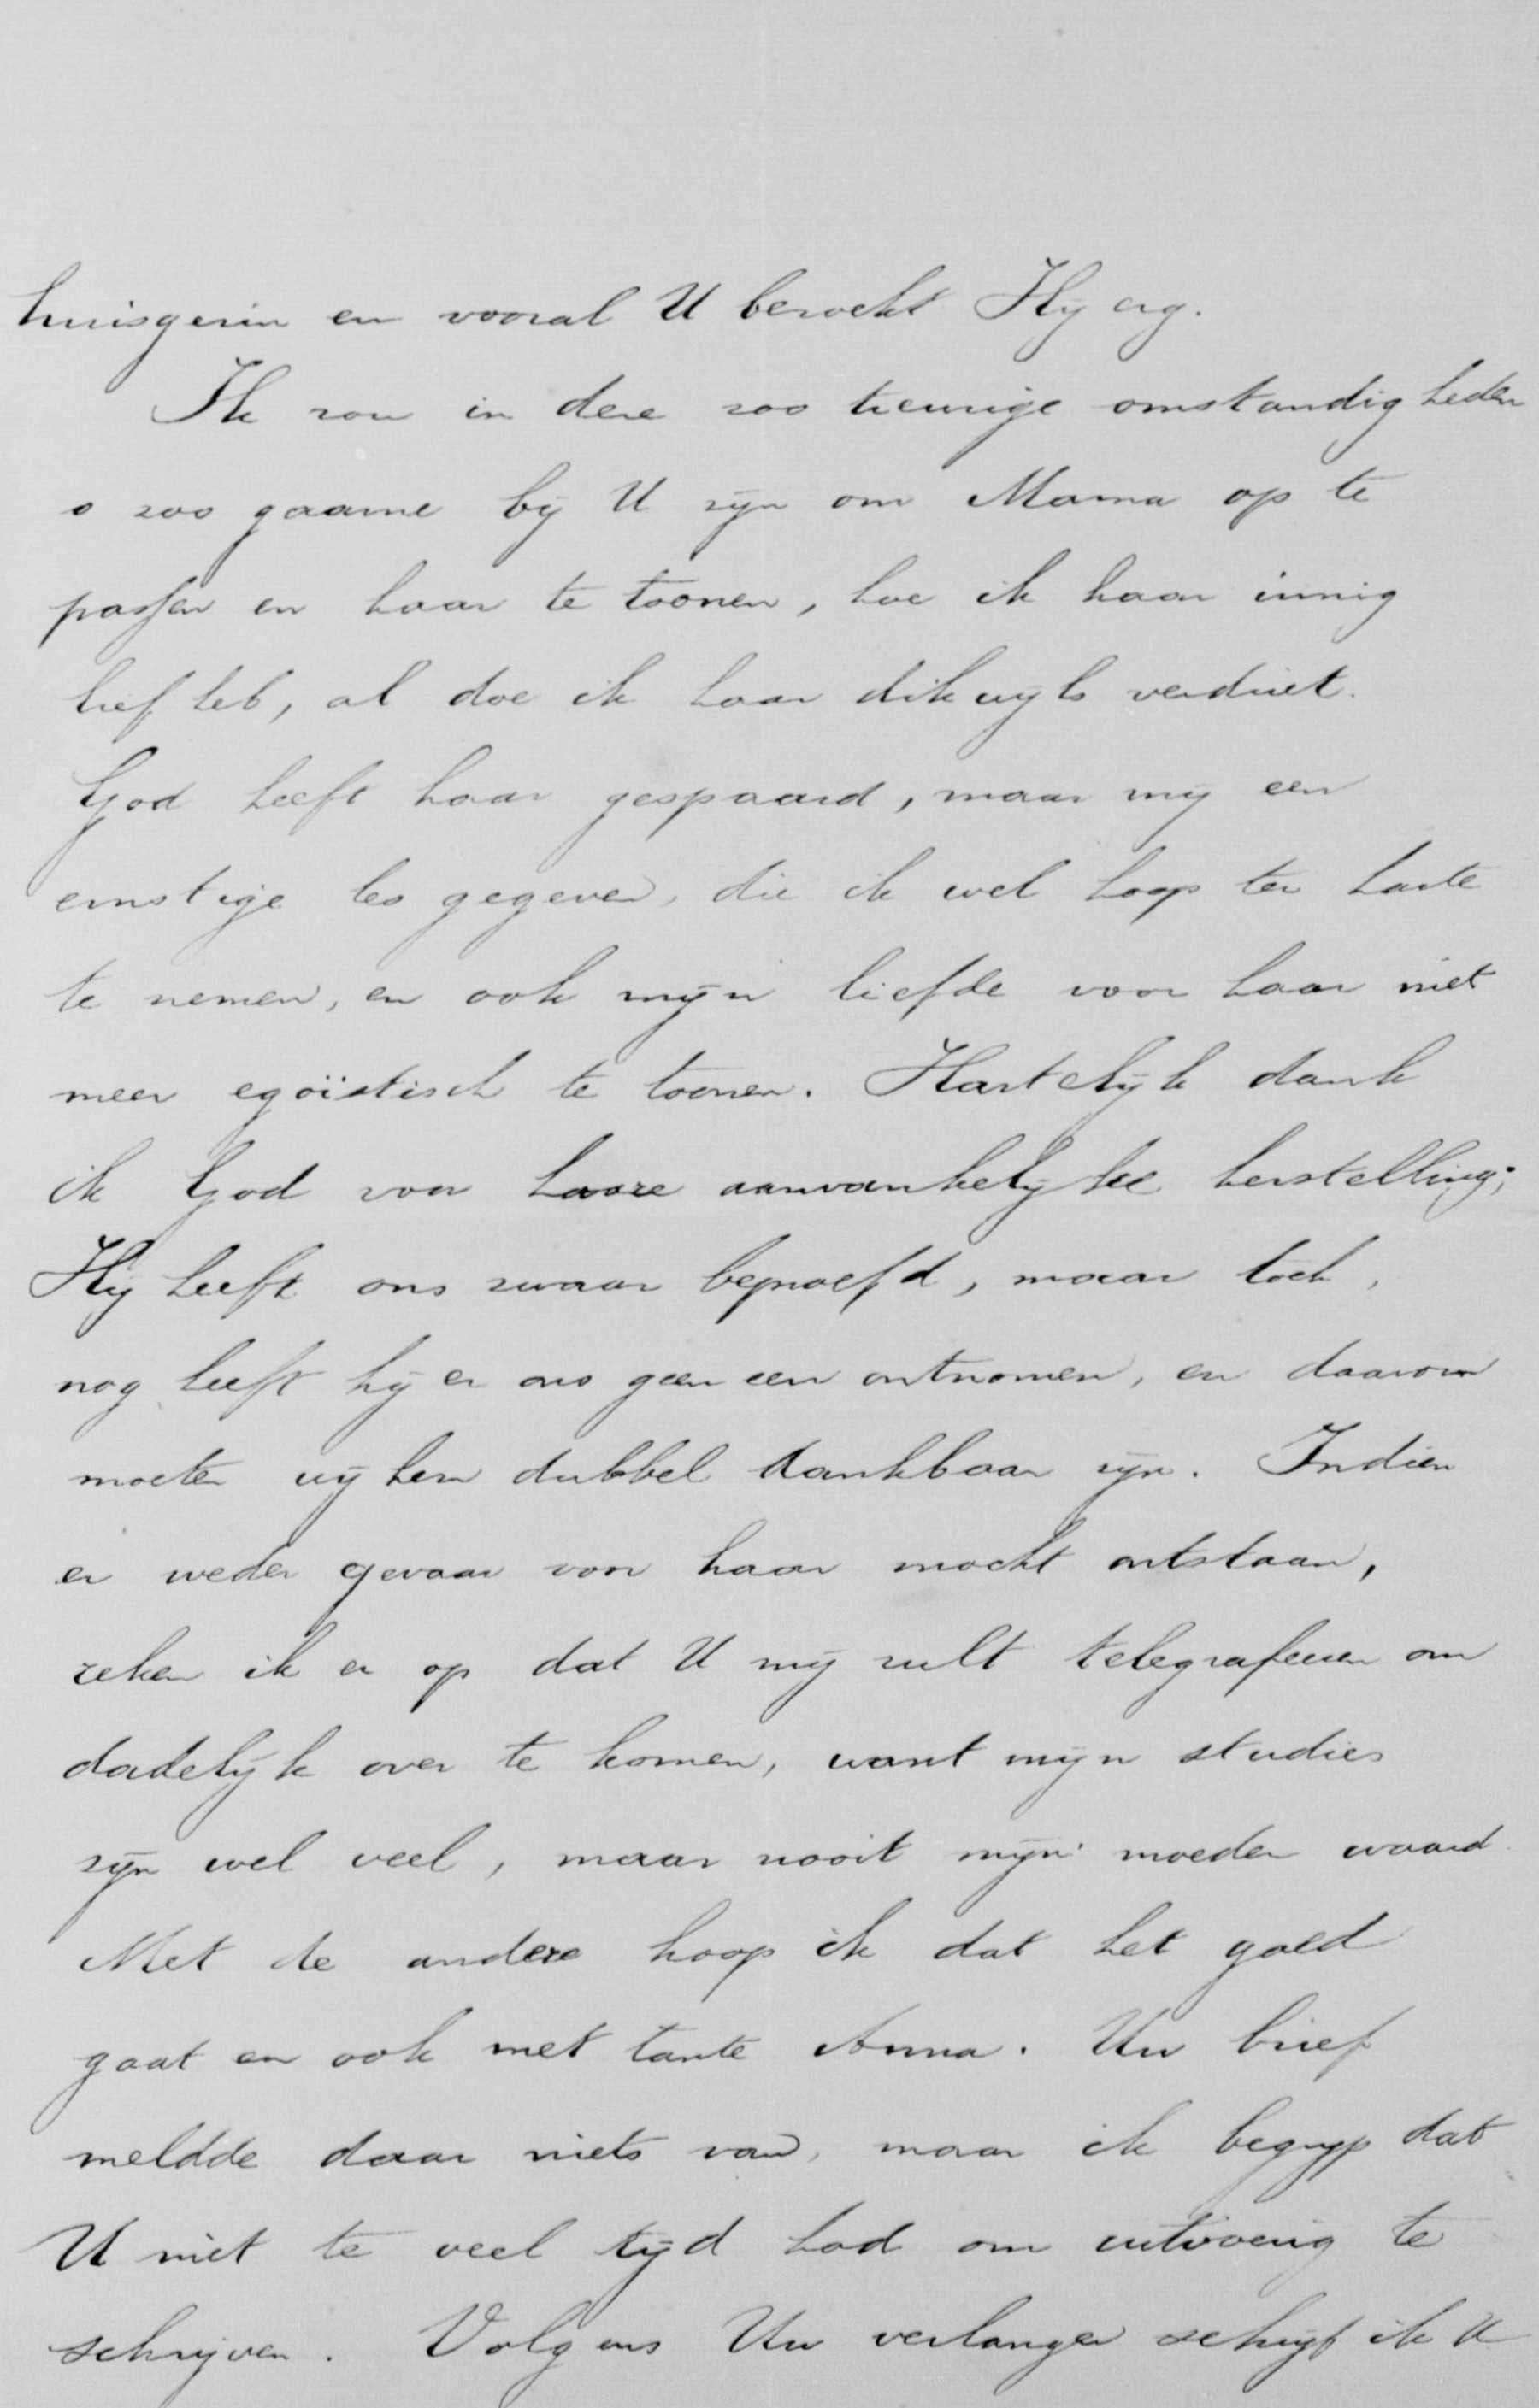 huisgezin en vooral U bezoekt Hij erg.
Ik zou in deze zoo treurige omstandigheden
o zoo gaarne bij U zijn om Mama op te
passen en haar te toonen, hoe ik haar innig
lief heb, al doe ik haar dikwijls verdriet.
God heeft haar gespaard, maar mij een
ernstige les gegeven, die ik wel hoop ter harte
te nemen, en ook mijn liefde voor haar niet
meer egoïstisch te toonen. Hartelijk dank
ik God voor haare aanvankelijke herstelling;
Hij heeft ons zwaar beproefd, maar toch,
nog heeft hij er ons geen een ontnomen, en daarom
moeten wij hem dubbel dankbaar zijn. Indien
er weder gevaar voor haar mocht ontstaan,
reken ik er op dat U mij zult telegrafeeren om
dadelijk over te komen, want mijn studies
zijn wel veel, maar nooit mijn moeder waard.
Met de andere hoop ik dat het goed
gaat en ook met tante Anna. Uw brief
meldde daar niets van, maar ik begrijp dat
U niet te veel tijd had om uitvoerig te
schrijven. Volgens Uw verlangen schrijf ik U